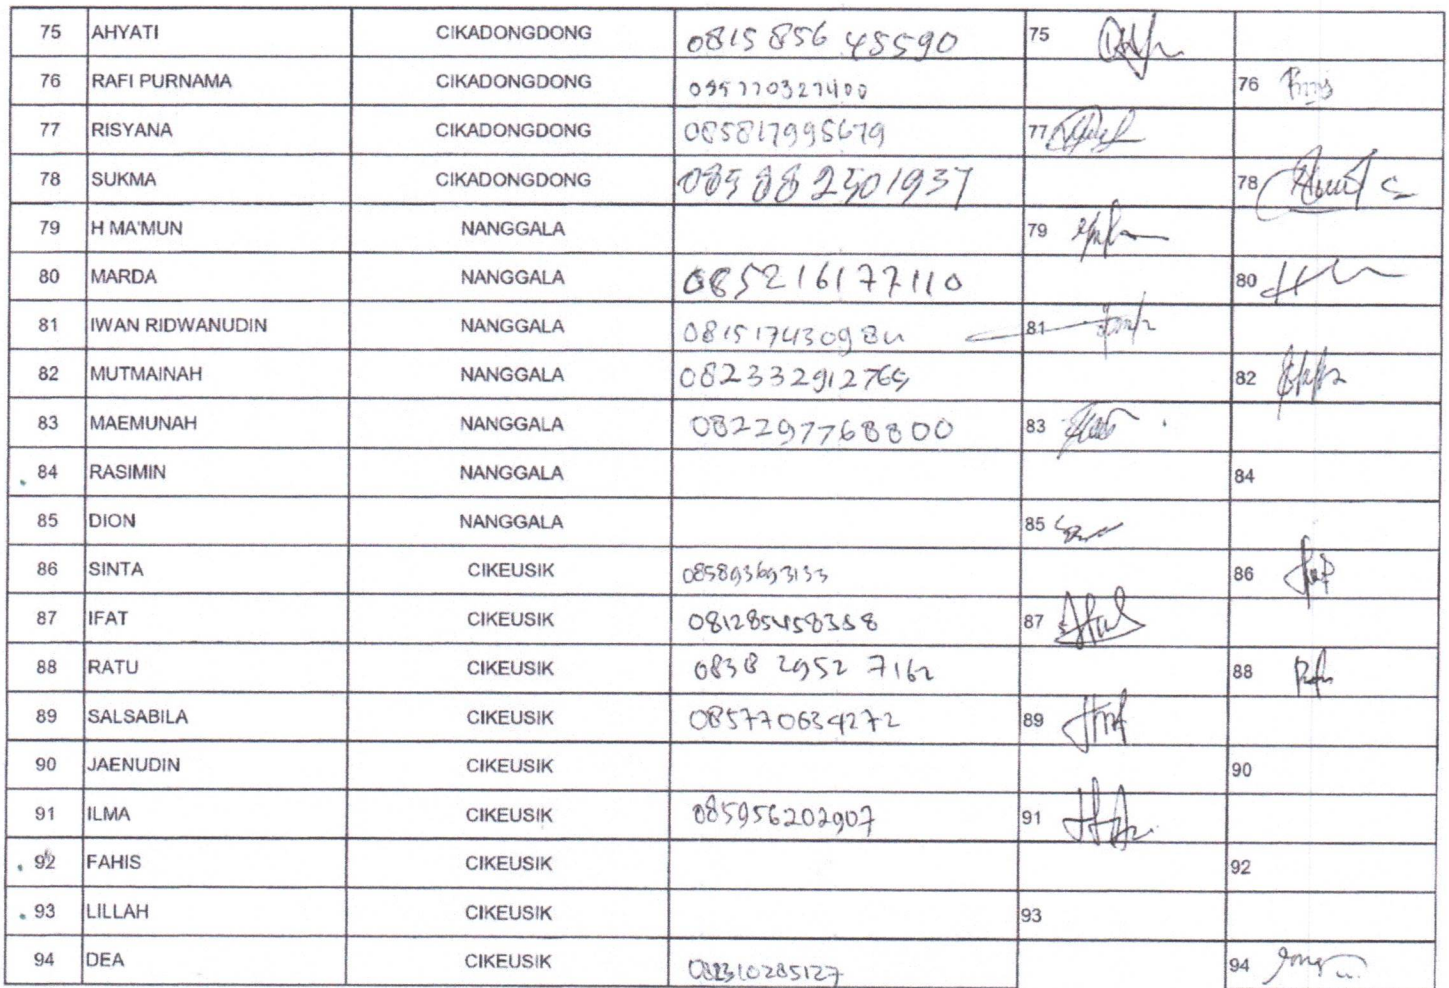 75 AHYATI CIKADONGDONG 0815 856 45590 75
76 RAFI PURNAMA CIKADONGDONG 76
77 RISYANA CIKADONGDONG 085817995679 77
78 SUKMA CIKADONGDONG 085882501937 78
79 H MA'MUN NANGGALA 79
80 MARDA NANGGALA 085216177110 80
81 IWAN RIDWANUDIN NANGGALA 81
82 MUTMAINAH NANGGALA 082332912765 82
83 MAEMUNAH NANGGALA 082297768800 83
84 RASIMIN NANGGALA 84
85 DION NANGGALA 85
86 SINTA CIKEUSIK 085893693133 86
87 IFAT CIKEUSIK 87
88 RATU CIKEUSIK 0838 2952 7162 88
89 SALSABILA CIKEUSIK 085770634272 89
90 JAENUDIN CIKEUSIK 90
91 ILMA CIKEUSIK 085956202907 91
92 FAHIS CIKEUSIK 92
93 LILLAH CIKEUSIK 93
94 DEA CIKEUSIK 94